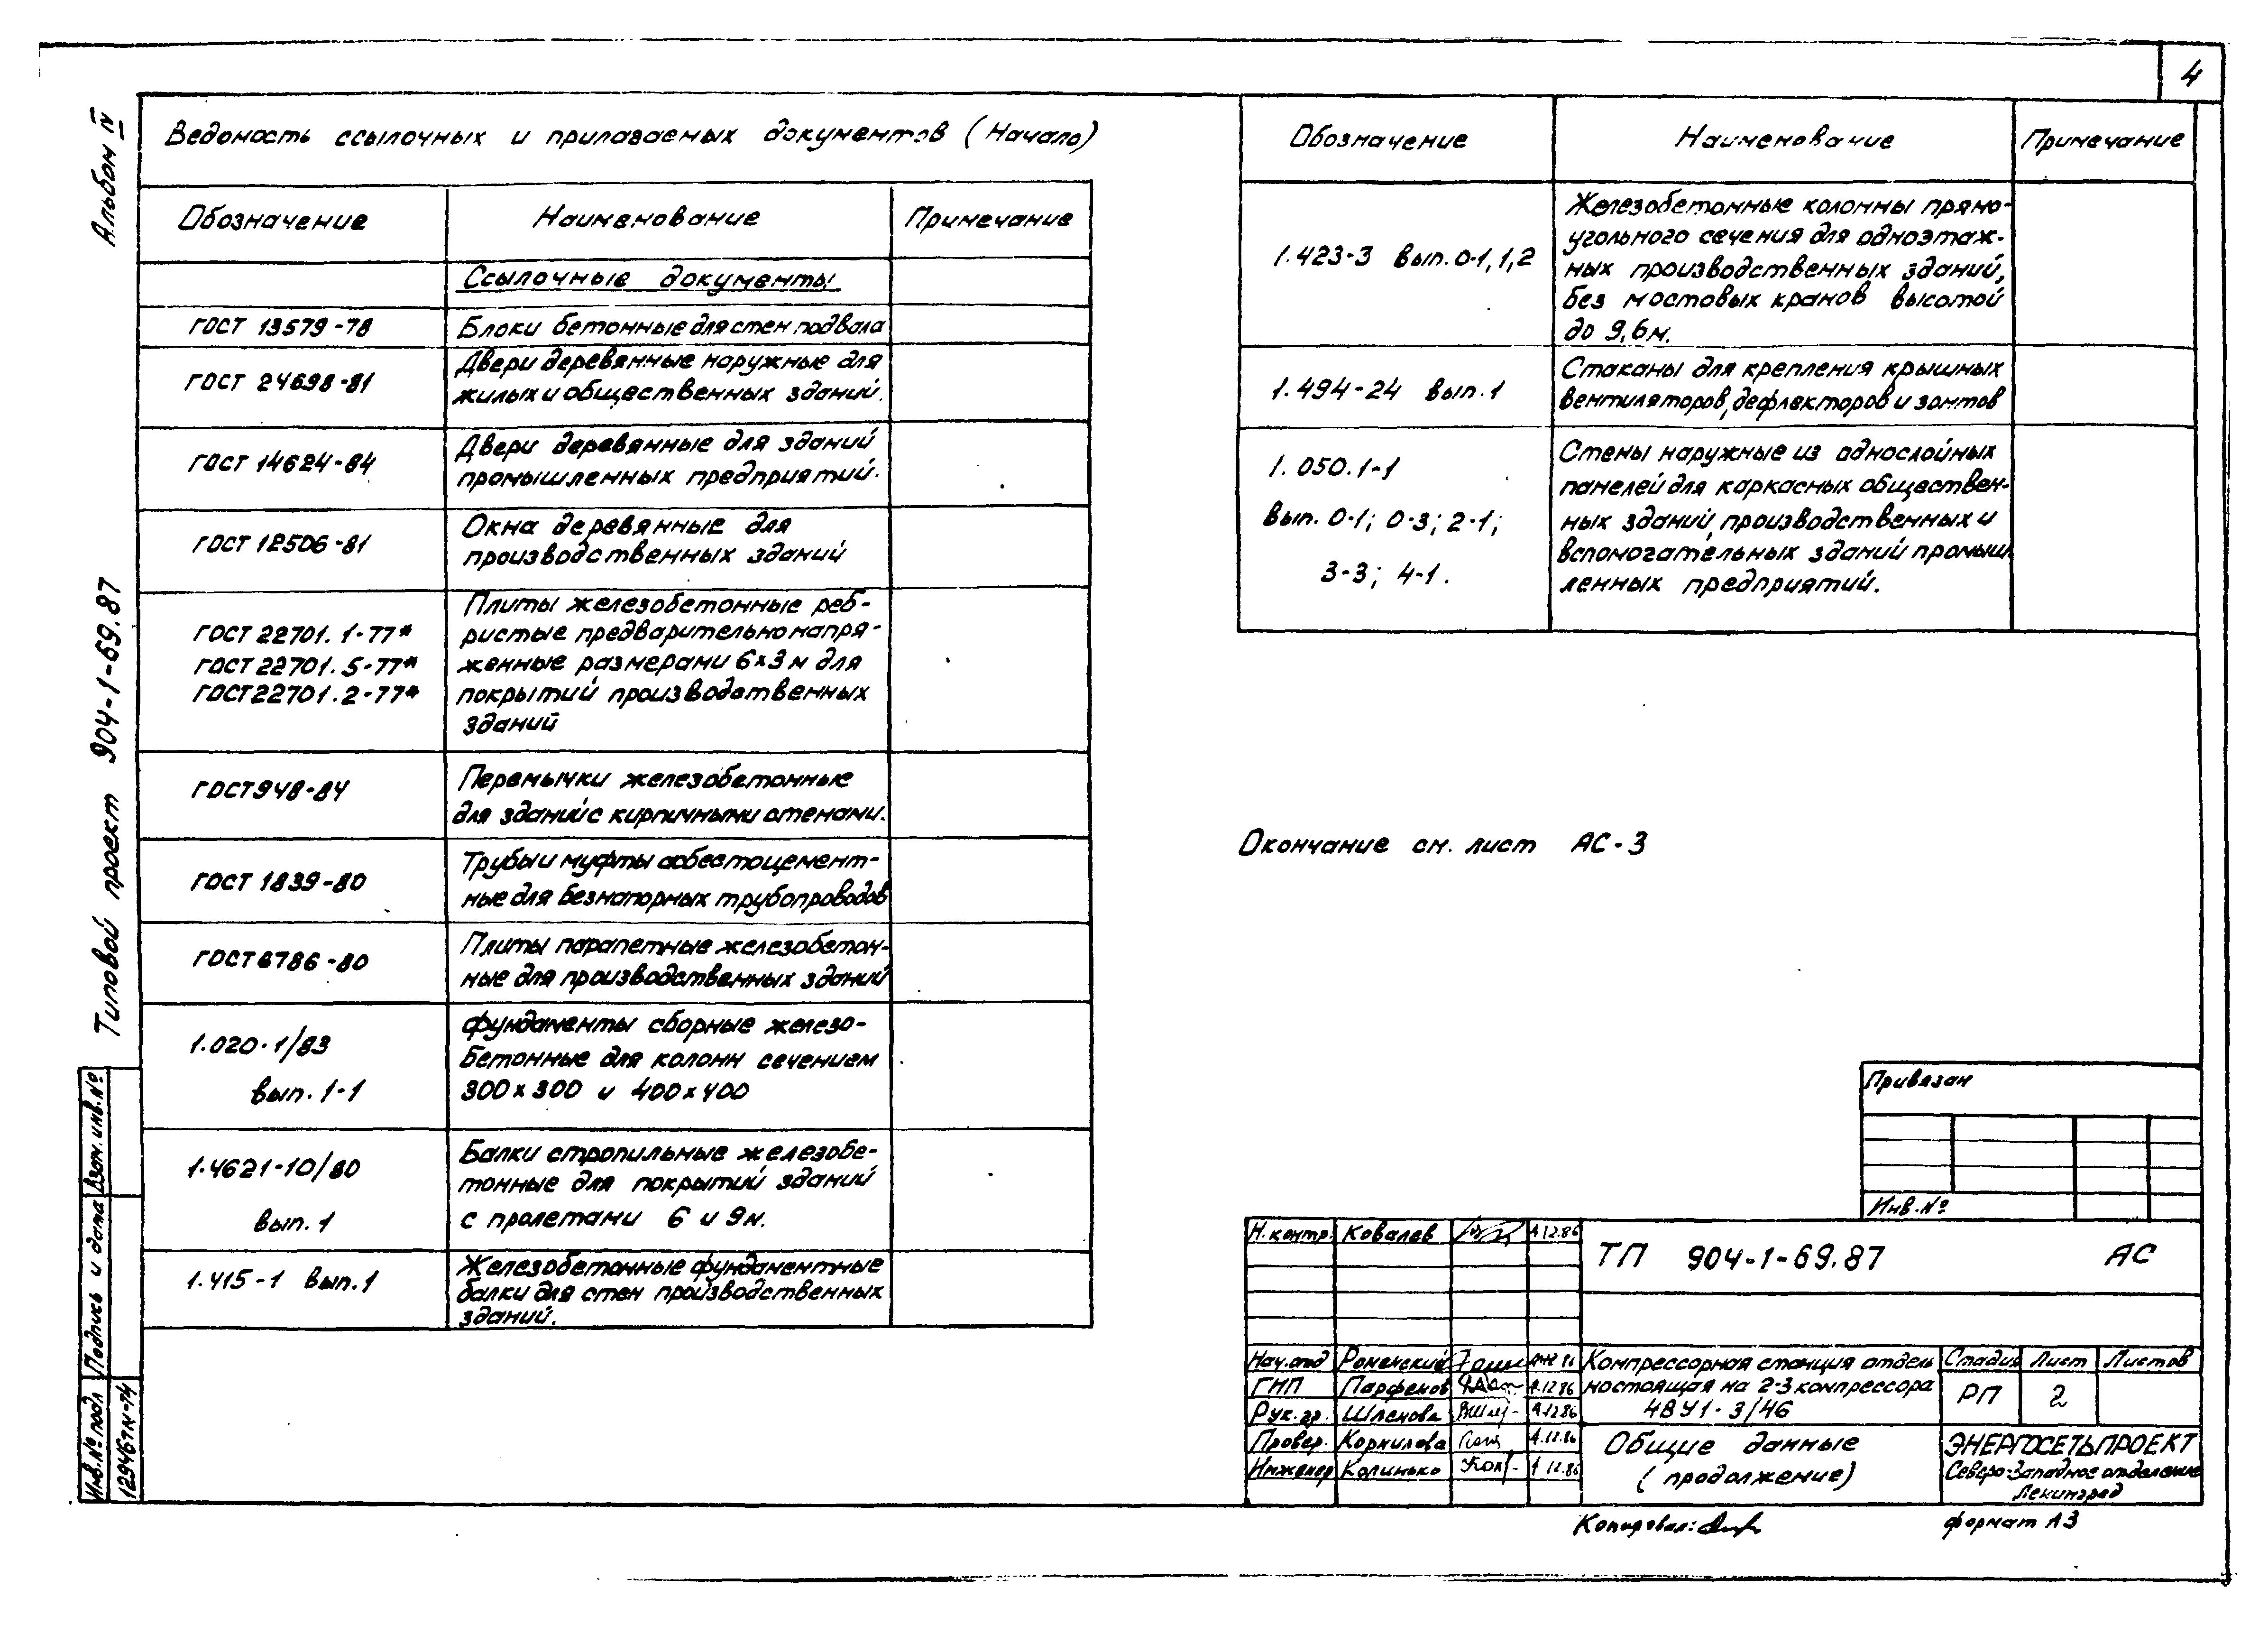 4
Альбом IV
Типовой проект 904-1-69.87
Ведомость ссылочных и прилагаемых документов (Начало)
Обозначение Наименование Примечание
Ссылочные документы
ГОСТ 13579-78 Блоки бетонные для стен подвала
ГОСТ 24698-81
Двери деревянные наружные для
жилых и общественных зданий.
ГОСТ 14624-84
Двери деревянные для зданий
промышленных предприятий.
ГОСТ 12506-81
Окна деревянные для
производственных зданий
ГОСТ 22701.1-77*
ГОСТ 22701.5-77*
ГОСТ 22701.2-77*
Плиты железобетонные реб-
ристые предварительно напря-
женные размерами 6х3м для
покрытий производственных
зданий
ГОСТ 948-84
Перемычки железобетонные
для зданий с кирпичными стенами.
ГОСТ 1839-80
Трубы и муфты асбестоцемент-
ные для безнапорных трубопроводов
ГОСТ 6786-80
Плиты парапетные железобетон-
ные для производственных зданий
1.020-1/83
вып. 1-1
Фундаменты сборные железо-
бетонные для колонн сечением
300х300 и 400х400
1.4621-10/80
вып. 1
Балки стропильные железобе-
тонные для покрытий зданий
с пролетами 6 и 9м.
1.415-1 вып. 1
Железобетонные фундаментные
балки для стен производственных
зданий.
Обозначение Наименование Примечание
1.423-3 вып. 0-1, 1, 2
Железобетонные колонны прямо-
угольного сечения для одноэтаж-
ных производственных зданий,
без мостовых кранов высотой
до 9,6м.
1.494-24 вып. 1
Стаканы для крепления крышных
вентиляторов, дефлекторов и зонтов
1.050.1-1
вып. 0-1; 0-3; 2-1;
3-3; 4-1.
Стены наружные из однослойных
панелей для каркасных обществен-
ных зданий, производственных и
вспомогательных зданий промыш
ленных предприятий.
Окончание см. лист АС-3
Привязан
Инв. №
Н. контр. Ковалев 12.86
ТП 904-1-69.87 АС
Нач. отд Роменский 86
ГИП Парфенов 12.86
Рук. гр. Шленова 12.86
Провер. Корнилова 12.86
Инженер Калинько 12.86
Компрессорная станция отдель
ностоящая на 2-3 компрессора
4ВУ1-3/46
Стадия Лист Листов
РП 2
Общие данные
(продолжение)
ЭНЕРГОСЕТЬПРОЕКТ
Северо-Западное отделение
Ленинград
Копировал:
формат А3
Взам. инв. №
Подпись и дата
Инв. № подл
12946тм-т4